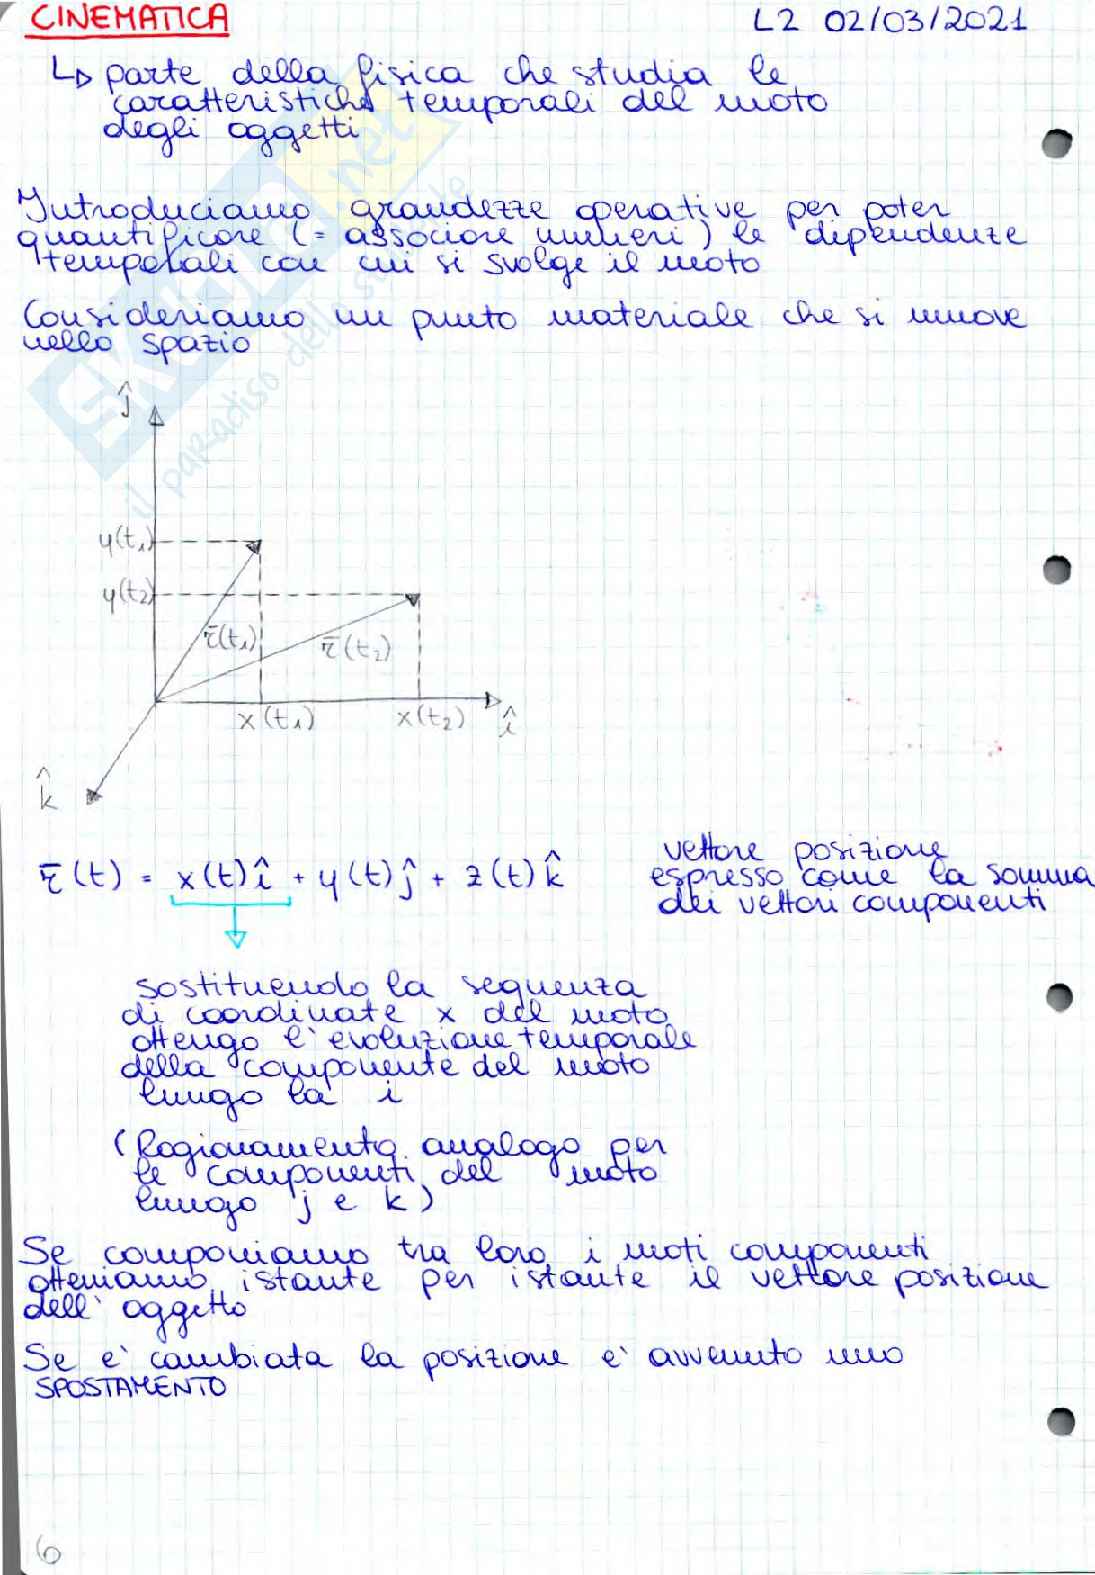 CINEMATICA L2 02/03/2021
↳ parte della fisica che studia le
caratteristiche temporali del moto
degli oggetti
Introduciamo grandezze operative per poter
quantificare (= associare numeri) le dipendenze
temporali con cui si svolge il moto
Consideriamo un punto materiale che si muove
nello spazio
skuola.net
il paradiso dello studente
ĵ
y(t₁)
y(t₂)
r̄(t₁)
r̄(t₂)
x(t₁) x(t₂) î
k̂
r̄(t) = x(t)î + y(t)ĵ + z(t)k̂
vettore posizione
espresso come la somma
dei vettori componenti
sostituendo la sequenza
di coordinate x del moto
ottengo l'evoluzione temporale
della componente del moto
lungo la i
(Ragionamento analogo per
le componenti del moto
lungo j e k)
Se componiamo tra loro i moti componenti
otteniamo istante per istante il vettore posizione
dell'oggetto
Se e' cambiata la posizione e' avvenuto uno
SPOSTAMENTO
6